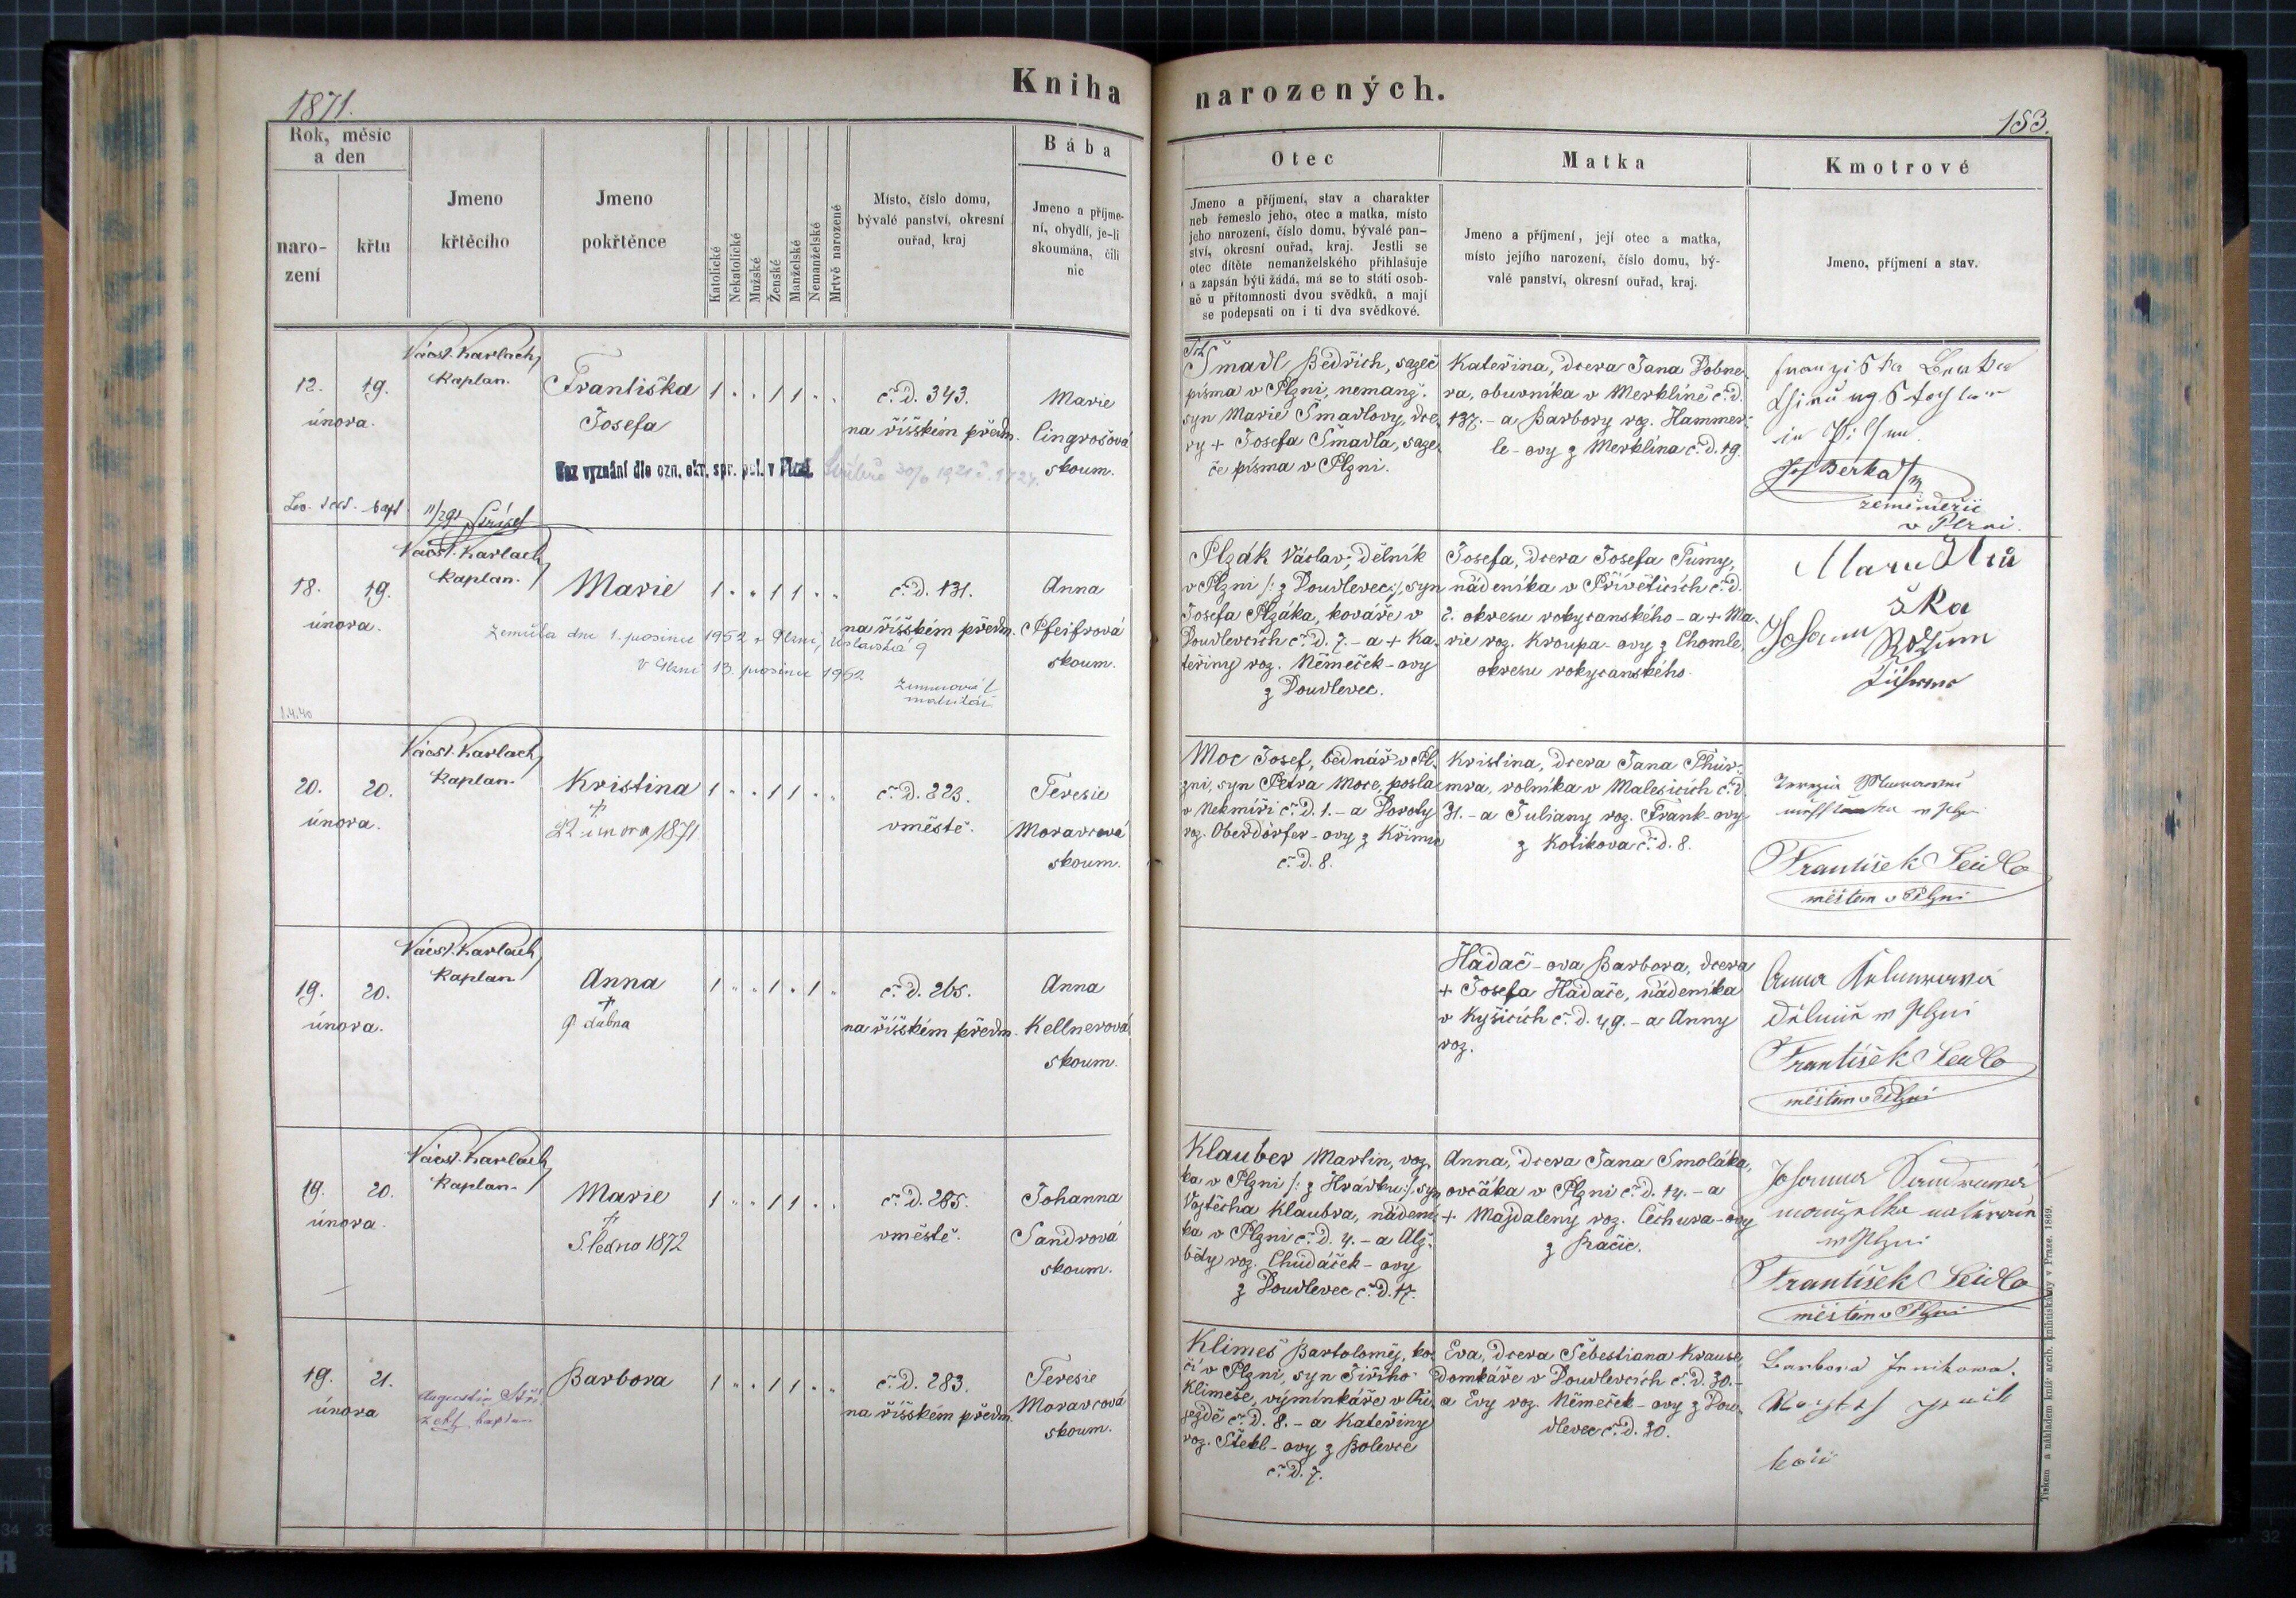 Kniha narozených.
1871.
153.
Rok, měsíc
a den
naro-
zení
křtu
Jmeno
křtěcího
Jmeno
pokřtěnce
Katolické
Nekatolické
Mužské
Ženské
Manželské
Nemanželské
Mrtvě narozené
Místo, číslo domu,
bývalé panství, okresní
ouřad, kraj
Bába
Jmeno a příjme-
ní, obydlí, je-li
skoumána, čili
nic
Otec
Jmeno a příjmení, stav a charakter
neb řemeslo jeho, otec a matka, místo
jeho narození, číslo domu, bývalé pan-
ství, okresní ouřad, kraj. Jestli se
otec dítěte nemanželského přihlašuje
a zapsán býti žádá, má se to státi osob-
ně u přítomnosti dvou svědků, a mají
se podepsati on i ti dva svědkové.
Matka
Jmeno a příjmení, její otec a matka,
místo jejího narození, číslo domu, bý-
valé panství, okresní ouřad, kraj.
Kmotrové
Jmeno, příjmení a stav.
12. 19.
února.
Vácsl. Karlach,
Kaplan.
Františka
Josefa
1 . . 1 1 . .
č. d. 343.
na říšském předm.
Marie
Lingrošová
skoum.
Bez vyznání dle ozn. okr. spr. pol. v Plzni
Šmadl Bedřich, sazeč
písma v Plzni, nemanž.
syn Marie Šmadlovy, dce-
ry + Josefa Šmadla, saze-
če písma v Plzni.
Kateřina, dcera Jana Dobne-
ra, obuvníka v Merklíně č. d.
137. - a Barbory roz. Hammer-
le-ovy z Merklína č. d. 19.
in Pilsen
Jos Berka
zeměměřič
v Plzni.
18. 19.
února.
Vácsl. Karlach,
Kaplan.
Marie
1 . . 1 1 . .
č. d. 131.
na říšském předm.
Anna
Pfeifrová
skoum.
Zemřela dne 1. prosince 1952 v Plzni, Úslavská 9
V Plzni 13. prosince 1952
matrikář
1.4.40
Plzák Václav, dělník
v Plzni /: z Doudlevec :/, syn
Josefa Plzáka, kováře v
Doudlevcích č. d. 7. - a + Ka-
teřiny roz. Němeček-ovy
z Doudlevec.
Josefa, dcera Josefa Tůmy,
nádeníka v Přívěticích č. d.
2. okresu rokycanského - a + Ma-
rie roz. Kroupa-ovy z Chomle,
okresu rokycanského.
Johann
20. 20.
února.
Vácsl. Karlach,
Kaplan.
Kristina
+
22 února 1871
1 . . 1 1 . .
č. d. 223.
v městě.
Teresie
Moravcová
skoum.
Moc Josef, bednář v Pl-
zni, syn Petra Moce, posla
v Nekmíři č. d. 1. - a Doroty
roz. Oberdörfer-ovy z Křimic
č. d. 8.
Kristina, dcera Jana Thür-
mra, rolníka v Malesicích č. d.
31. - a Juliany roz. Frank-ovy
z Kotikova č. d. 8.
František Seidl
měšťan v Plzni
19. 20.
února.
Vácsl. Karlach,
Kaplan
Anna
+
9. dubna
1 . . 1 . 1 .
č. d. 265.
na říšském předm.
Anna
Kellnerová
skoum.
Hadač-ova Barbora, dcera
+ Josefa Hadače, nádeníka
v Kyšicích č. d. 49. - a Anny
roz.
Anna
w Plzni
František Seidl
měšťan v Plzni
19. 20.
února.
Vácsl. Karlach,
Kaplan.
Marie
+
5. ledna 1872
1 . . 1 1 . .
č. d. 285.
v městě.
Johanna
Sandrová
skoum.
Klauber Martin, voz-
ka v Plzni /: z Hrádku :/, syn
Vojtěcha Klaubra, nádení-
ka v Plzni č. d. 4. - a Alž-
běty roz. Chudáček-ovy
z Doudlevec č. d. 17.
Anna, dcera Jana Smoláka,
ovčáka v Plzni č. d. 14. - a
+ Majdaleny roz. Čechura-ovy
z Račic.
Johanna
manželka
w Plzni
František Seidl
měšťan v Plzni
19. 21.
února
Augustin
kaplan
Barbora
1 . . 1 1 . .
č. d. 283.
na říšském předm.
Teresie
Moravcová
skoum.
Klimeš Bartoloměj, ko-
čí v Plzni, syn Jiřího
Klimeše, výminkáře v Új-
ezdě č. d. 8. - a Kateřiny
roz. Štekl-ovy z Bolevce
č. d. 7.
Eva, dcera Šebestiana Krause,
domkáře v Doudlevcích č. d. 30. -
a Evy roz. Němeček-ovy z Dou-
dlevec č. d. 30.
Barbora Jenikowa.
kočí
Tiskem a nákladem kníž. arcib. knihtiskárny v Praze. 1869.